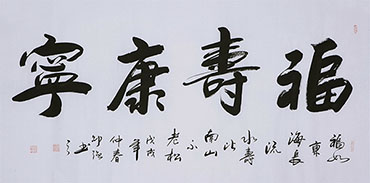 福壽康寧
福如東海長流水壽比南山不老松
戊戌年仲春
書